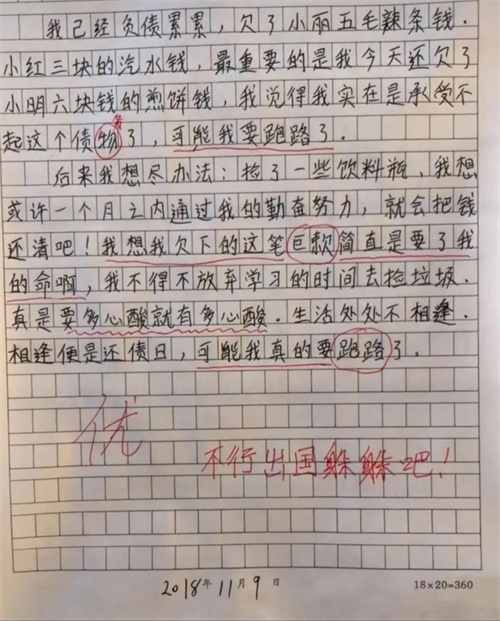 我已经负债累累，欠了小丽五毛辣条钱．
小红三块的汽水钱，最重要的是我今天还欠了
小明六块钱的煎饼钱，我觉得我实在是承受不
务
起这个债物了，可能我要跑路了．
后来我想尽办法：捡了一些饮料瓶，我想
或许一个月之内通过我的勤奋努力，就会把钱
还清吧！我想我欠下的这笔巨款简直是要了我
的命啊，我不得不放弃学习的时间去捡垃圾．
真是要多心酸就有多心酸．生活处处不相逢．
相逢便是还债日，可能我真的要跑路了．
优
不行出国躲躲吧！
2018年11月9日
18×20=360